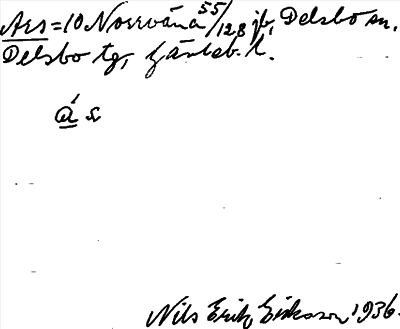 Aes = 10 Norrväna 55/128 jb, Delsbo sn.
Delsbo tg, Gävleb. l.
á s
Nils Erik Eriksson 1936.